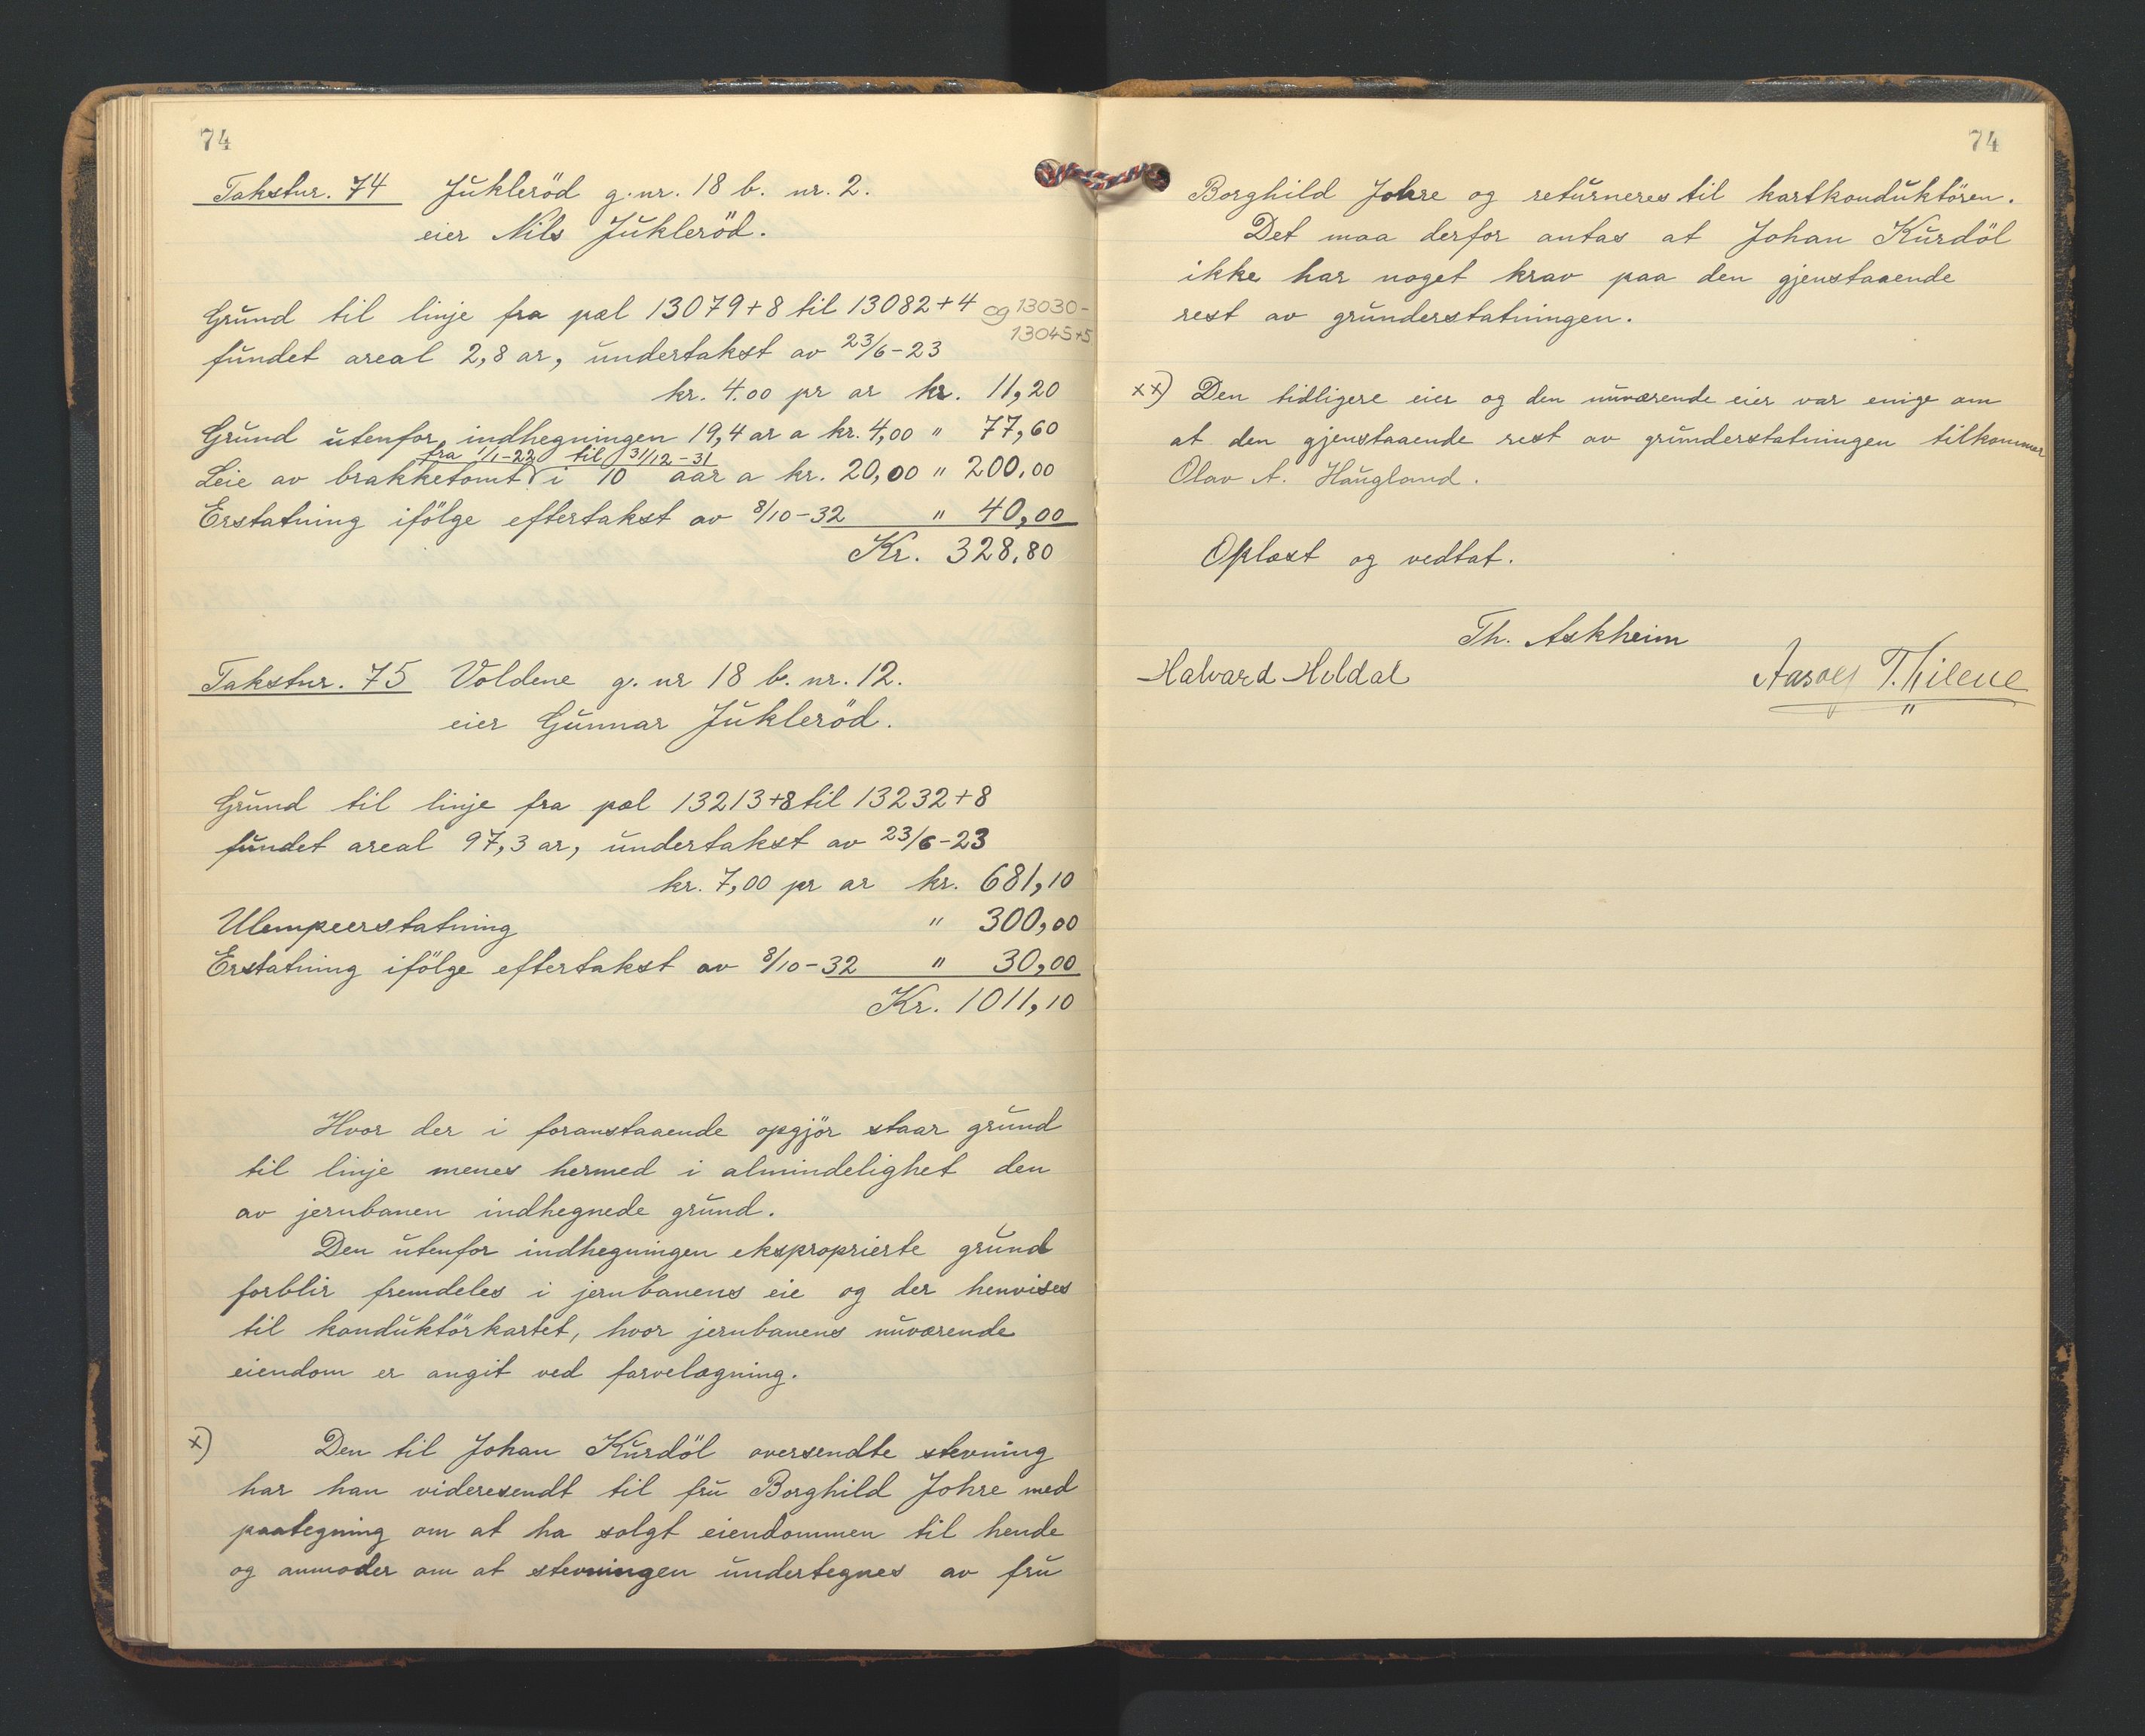 74
Takstnr. 74 Jukleröd g.nr. 18 b. nr. 2.
eier Nils Jukleröd.
Grund til linje fra pæl 13079+8 til 13082+4 og 13030-
13045+5
fundet areal 2,8 ar, undertakst av 23/6-23
kr. 4.00 pr ar kr. 11,20
Grund utenfor indhegningen 19,4 ar a kr. 4,00 " 77,60
fra 1/1-22 til 31/12-31
Leie av brakketomt i 10 aar a kr. 20,00 " 200.00
Erstatning ifölge eftertakst av 8/10-32 " 40,00
Kr. 328,80
Takstnr. 75 Voldene g. nr 18 b. nr. 12.
eier Gunnar Jukleröd.
Grund til linje fra pæl 13213+8 til 13232+8
fundet areal 97,3 ar, undertakst av 23/6-23
kr. 7,00 pr ar kr. 681,10
Ulempeerstatning " 300,00
Erstatning ifölge eftertakst av 8/10-32 " 30,00
Kr. 1011,10
Hvor der i foranstaaende opgjör staar grund
til linje menes hermed i almindelighet den
av jernbanen indhegnede grund.
Den utenfor indhegningen ekspropierte grund
forblir fremdeles i jernbanens eie og der henvises
til konduktörkartet, hvor jernbanens nuværende
eiendom er angit ved farvelægning.
x) Den til Johan Kurdöl oversendte stevning
har han videresendt til fru Borghild Johre med
paategning om at ha solgt eiendommen til hende
og anmoder om at stevningen undertegnes av fru
74
Borghild Johre og returneres til kartkonduktören.
Det maa derfor antas at Johan Kurdöl
ikke har noget krav paa den gjenstaaende
rest av grunderstatningen.
xx) Den tidligere eier og den nuværende eier var enige om
at den gjenstaaende rest av grunderstatningen tilkommer
Olav A. Haugland.
Oplæst og vedtat.
Th. Askheim
Halvard Holdal